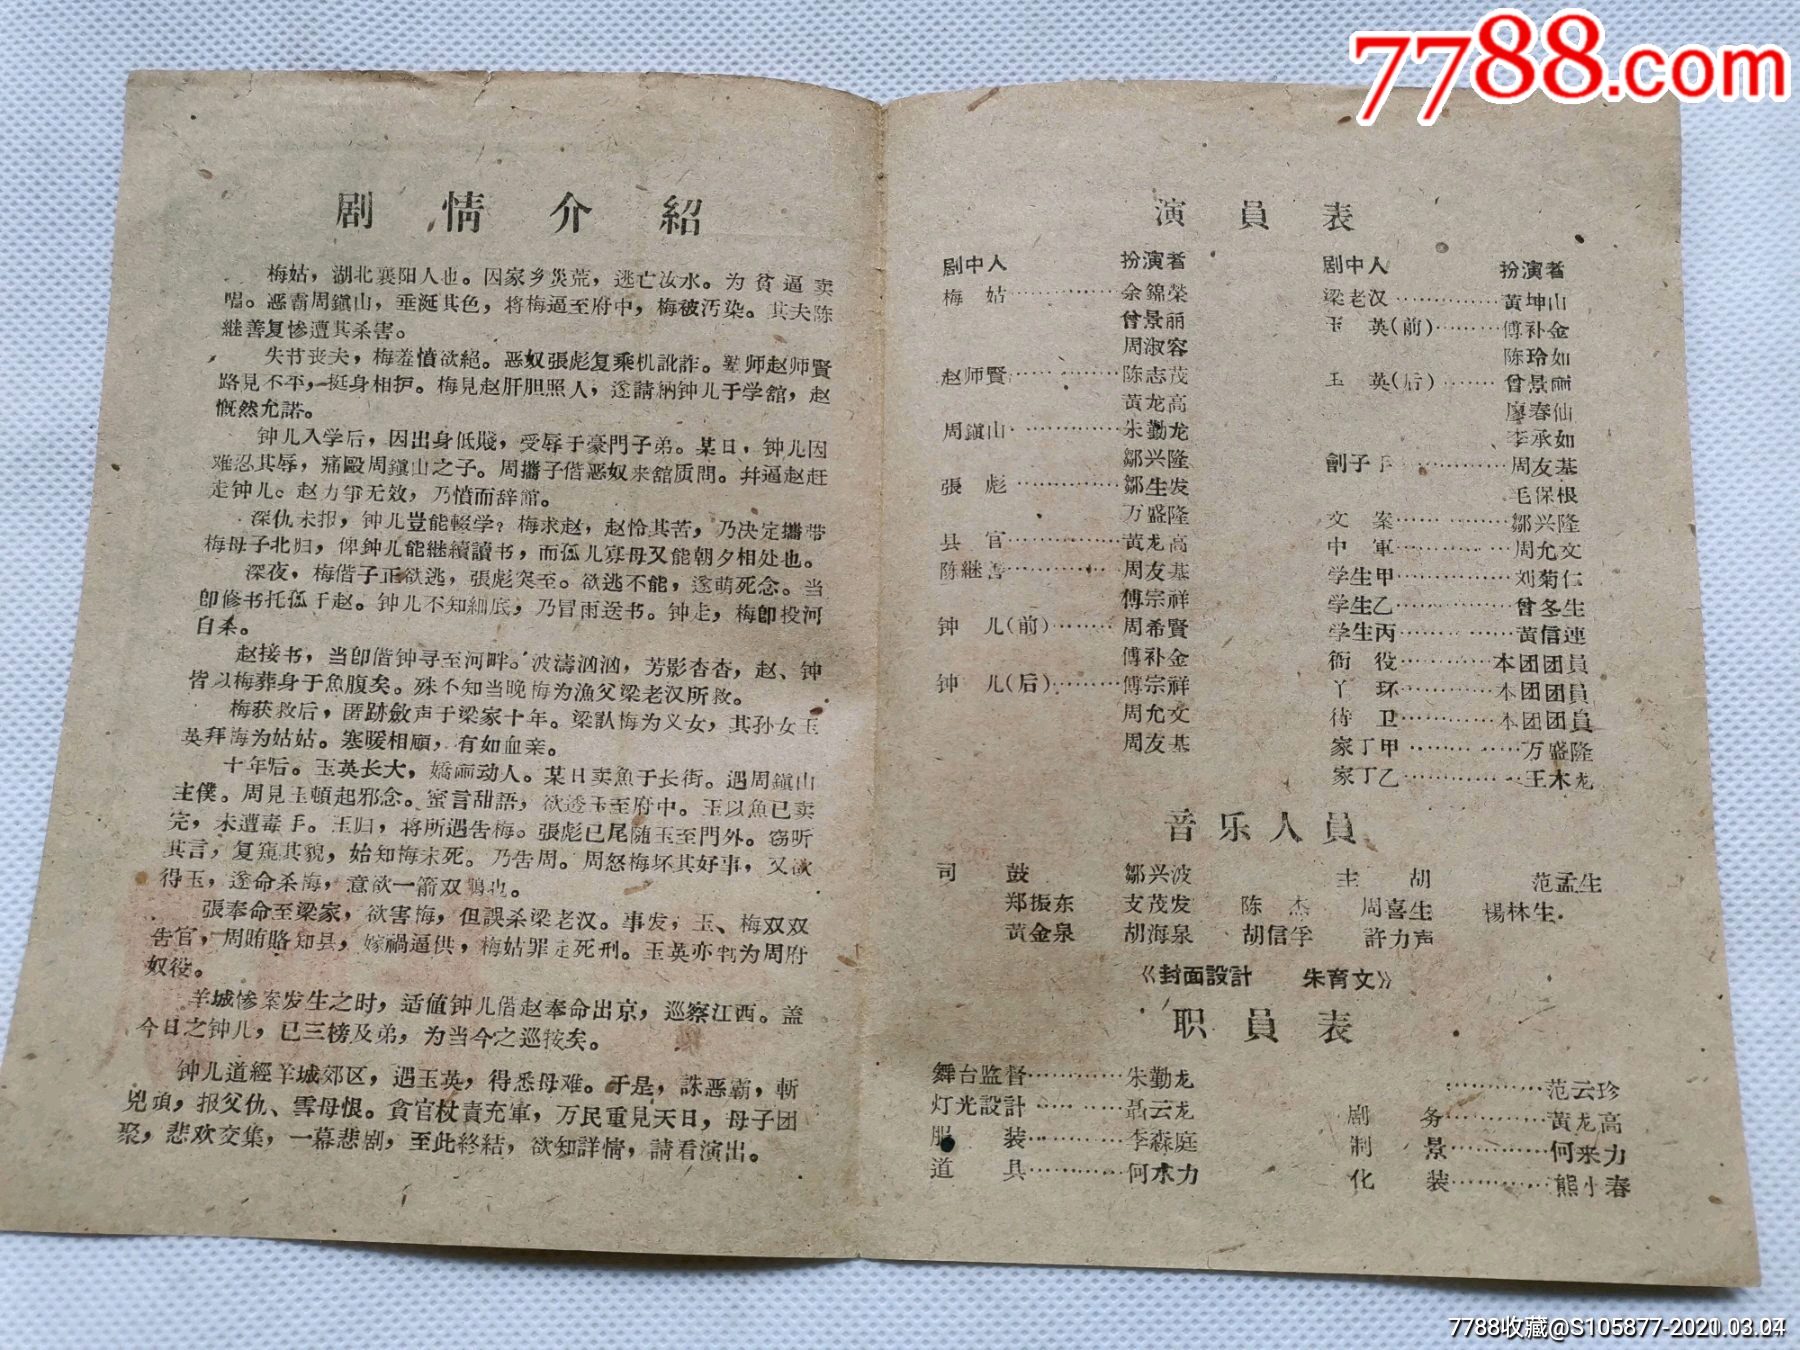 7788.com
剧情介紹
梅姑，湖北襄阳人也。因家乡災荒，逃亡汝水。为贫逼卖
唱。恶霸周鎭山，垂涎其色，将梅逼至府中，梅被汚染。其夫陈
継善复惨遭其杀害。
失节丧夫，梅羞憤欲絕。恶奴張彪复乘机訛詐。塾师赵师賢
路見不平，挺身相护。梅見赵肝胆照人，遂請納钟儿于学舘，赵
慨然允諾。
钟儿入学后，因出身低賤，受辱于豪門子弟。某日，钟儿因
难忍其辱，痛毆周鎭山之子。周攜子偕恶奴来舘质問。幷逼赵赶
走钟儿。赵力爭无效，乃憤而辞館。
深仇未报，钟儿豈能輟学？梅求赵，赵怜其苦，乃决定攜带
梅母子北归，俾钟儿能継續讀书，而孤儿寡母又能朝夕相处也。
深夜，梅偕子正欲逃，張彪突至。欲逃不能，遂萌死念。当
卽修书托孤于赵。钟儿不知細底，乃冒雨送书。钟走，梅卽投河
自杀。
赵接书，当卽偕钟寻至河畔。波濤汹汹，芳影杳杳，赵、钟
皆以梅葬身于魚腹矣。殊不知当晚梅为漁父梁老汉所救。
梅获救后，匿跡斂声于梁家十年。梁認梅为义女，其孙女玉
英拜梅为姑姑。寒暖相顧，有如血亲。
十年后。玉英长大，嬌丽动人。某日卖魚于长街。遇周鎭山
主僕。周見玉頓起邪念。蜜言甜語，欲透玉至府中。玉以魚已卖
完，未遭毒手。玉归，将所遇告梅。張彪已尾随玉至門外。窃听
其言，复窺其貌，始知梅未死。乃告周。周怒梅坏其好事，又欲
得玉，遂命杀梅，意欲一箭双鵰也。
張奉命至梁家，欲害梅，但誤杀梁老汉。事发，玉、梅双双
告官，周賄賂知县，嫁禍逼供，梅姑罪定死刑。玉英亦判为周府
奴役。
羊城惨案发生之时，适値钟儿偕赵奉命出京，巡察江西。盖
今日之钟儿，已三榜及弟，为当今之巡按矣。
钟儿道經羊城郊区，遇玉英，得悉母难。于是，誅恶霸，斬
兇頑，报父仇、雪母恨。貪官杖責充軍，万民重見天日，母子团
聚，悲欢交集，一幕悲剧，至此終結，欲知詳情，請看演出。
演員表
剧中人 扮演者 剧中人 扮演者
梅姑 余錦榮 梁老汉 黃坤山
曾景丽 玉英(前) 傅补金
周淑容 陈玲如
赵师賢 陈志茂 玉英(后) 曾景丽
黃龙高 廖春仙
周鎭山 朱勤龙 李承如
鄒兴隆 劊子手 周友基
張彪 鄒生发 毛保根
万盛隆 文案 鄒兴隆
县官 黃龙高 中軍 周允文
陈継善 周友基 学生甲 刘菊仁
傅宗祥 学生乙 曾冬生
钟儿(前) 周希賢 学生丙 黃信連
傅补金 衙役 本团团員
钟儿(后) 傅宗祥 丫环 本团团員
周允文 待卫 本团团員
周友基 家丁甲 万盛隆
家丁乙 王木龙
音乐人員
司鼓 鄒兴波 主胡 范孟生
郑振东 支茂发 陈杰 周喜生 楊林生
黃金泉 胡海泉 胡信孚 許力声
《封面設計 朱育文》
职員表
舞台监督 朱勤龙 范云珍
灯光設計 聶云龙 剧务 黃龙高
服装 李森庭 制景 何来力
道具 何木力 化装 熊小春
7788收藏@S105877-2020.03.04